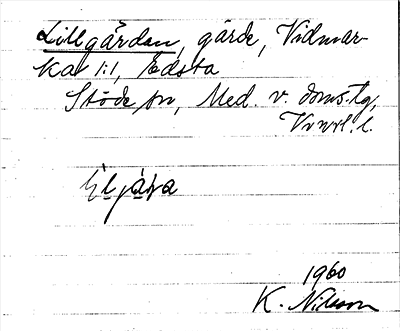 Lillgården, gärde, Vidmar-
ka 1:1, Edsta
Stöde sn, Med. v. doms.tg,
Vnrl. l.
1960
K. Nilsson